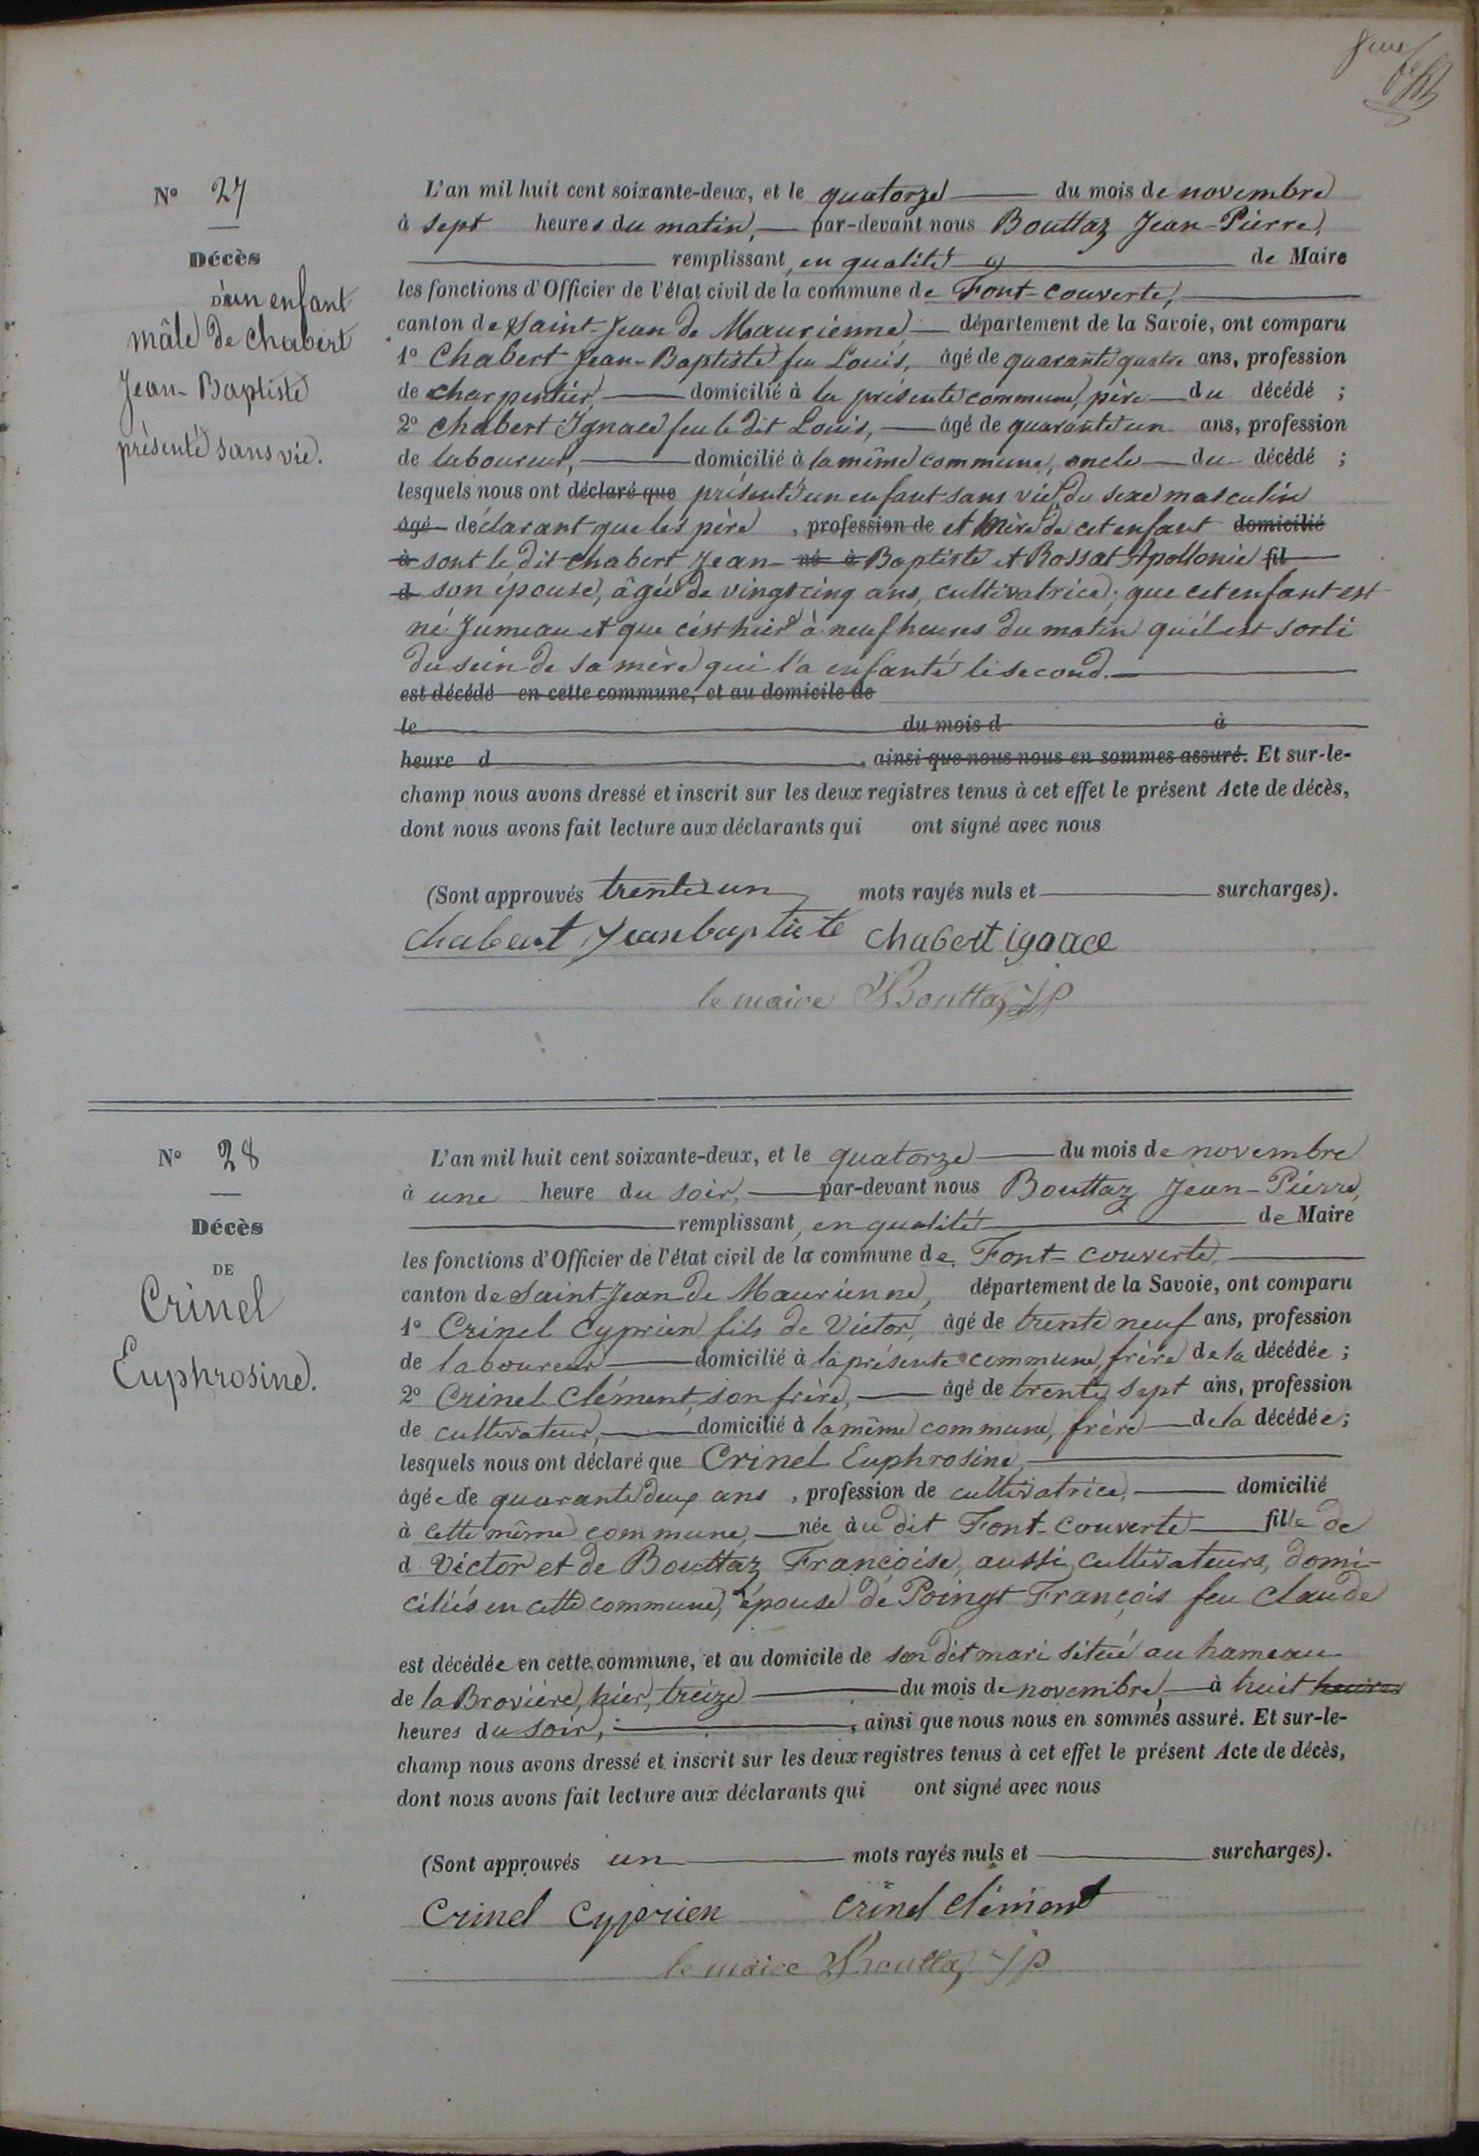 N° 27
Décès
d'un enfant
mâle de Chabert
Jean-Baptiste
présenté sans vie.
L'an mil huit cent soixante-deux, et le quatorze du mois de novembre
à sept heures du matin, par-devant nous Bouttaz Jean-Pierre,
remplissant, en qualité de Maire
les fonctions d'Officier de l'état civil de la commune de Font-couverte,
canton de Saint-Jean de Maurienne, département de la Savoie, ont comparu
1° Chabert Jean-Baptiste feu Louis, âgé de quarante quatre ans, profession
de charpentier, domicilié à la présente commune, père du décédé ;
2° Chabert Ignace feu le dit Louis, âgé de quarante un ans, profession
de laboureur, domicilié à la même commune, oncle du décédé ;
lesquels nous ont déclaré que présenté un enfant sans vie, du sexe masculin
âgé déclarant que les père , profession de et mère de cet enfant domicilié
à sont le dit Chabert Jean- né à Baptiste et Rossat Apollonie fil
d son épouse, âgée de vingt cinq ans, cultivatrice ; que cet enfant est
né Jumeau et que c'est hier à neuf heures du matin qu'il est sorti
du sein de sa mère qui l'a enfanté le second.
est décédé en cette commune, et au domicile de
le du mois d à
heure d , ainsi que nous nous en sommes assuré. Et sur-le-
champ nous avons dressé et inscrit sur les deux registres tenus à cet effet le présent Acte de décès,
dont nous avons fait lecture aux déclarants qui ont signé avec nous
(Sont approuvés trente un mots rayés nuls et surcharges).
Chabert Jean baptiste Chabert ignace
le maire Bouttaz JP
N° 28
Décès
DE
Crinel
Euphrosine.
L'an mil huit cent soixante-deux, et le quatorze du mois de novembre
à une heure du soir, par-devant nous Bouttaz Jean-Pierre,
remplissant, en qualité de Maire
les fonctions d'Officier de l'état civil de la commune de Font-couverte,
canton de Saint-Jean de Maurienne, département de la Savoie, ont comparu
1° Crinel Cyprien fils de Victor, âgé de trente neuf ans, profession
de laboureur domicilié à la présente commune, frère de la décédée ;
2° Crinel Clément, son frère, âgé de trente sept ans, profession
de cultivateur, domicilié à la même commune, frère de la décédée ;
lesquels nous ont déclaré que Crinel Euphrosine,
âgée de quarante deux ans , profession de cultivatrice, domicilié
à cette même commune, née au dit Font-couverte fille de
d Victor et de Bouttaz Françoise, aussi cultivateurs, domi-
ciliés en cette commune, épouse de Poingt François feu Claude
est décédée en cette commune, et au domicile de son dit mari situé au hameau
de la Brovière, hier, treize du mois de novembre, à huit heures
heures du soir, , ainsi que nous nous en sommes assuré. Et sur-le-
champ nous avons dressé et inscrit sur les deux registres tenus à cet effet le présent Acte de décès,
dont nous avons fait lecture aux déclarants qui ont signé avec nous
(Sont approuvés un mots rayés nuls et surcharges).
Crinel Cyprien Crinel Clément
le maire Bouttaz JP